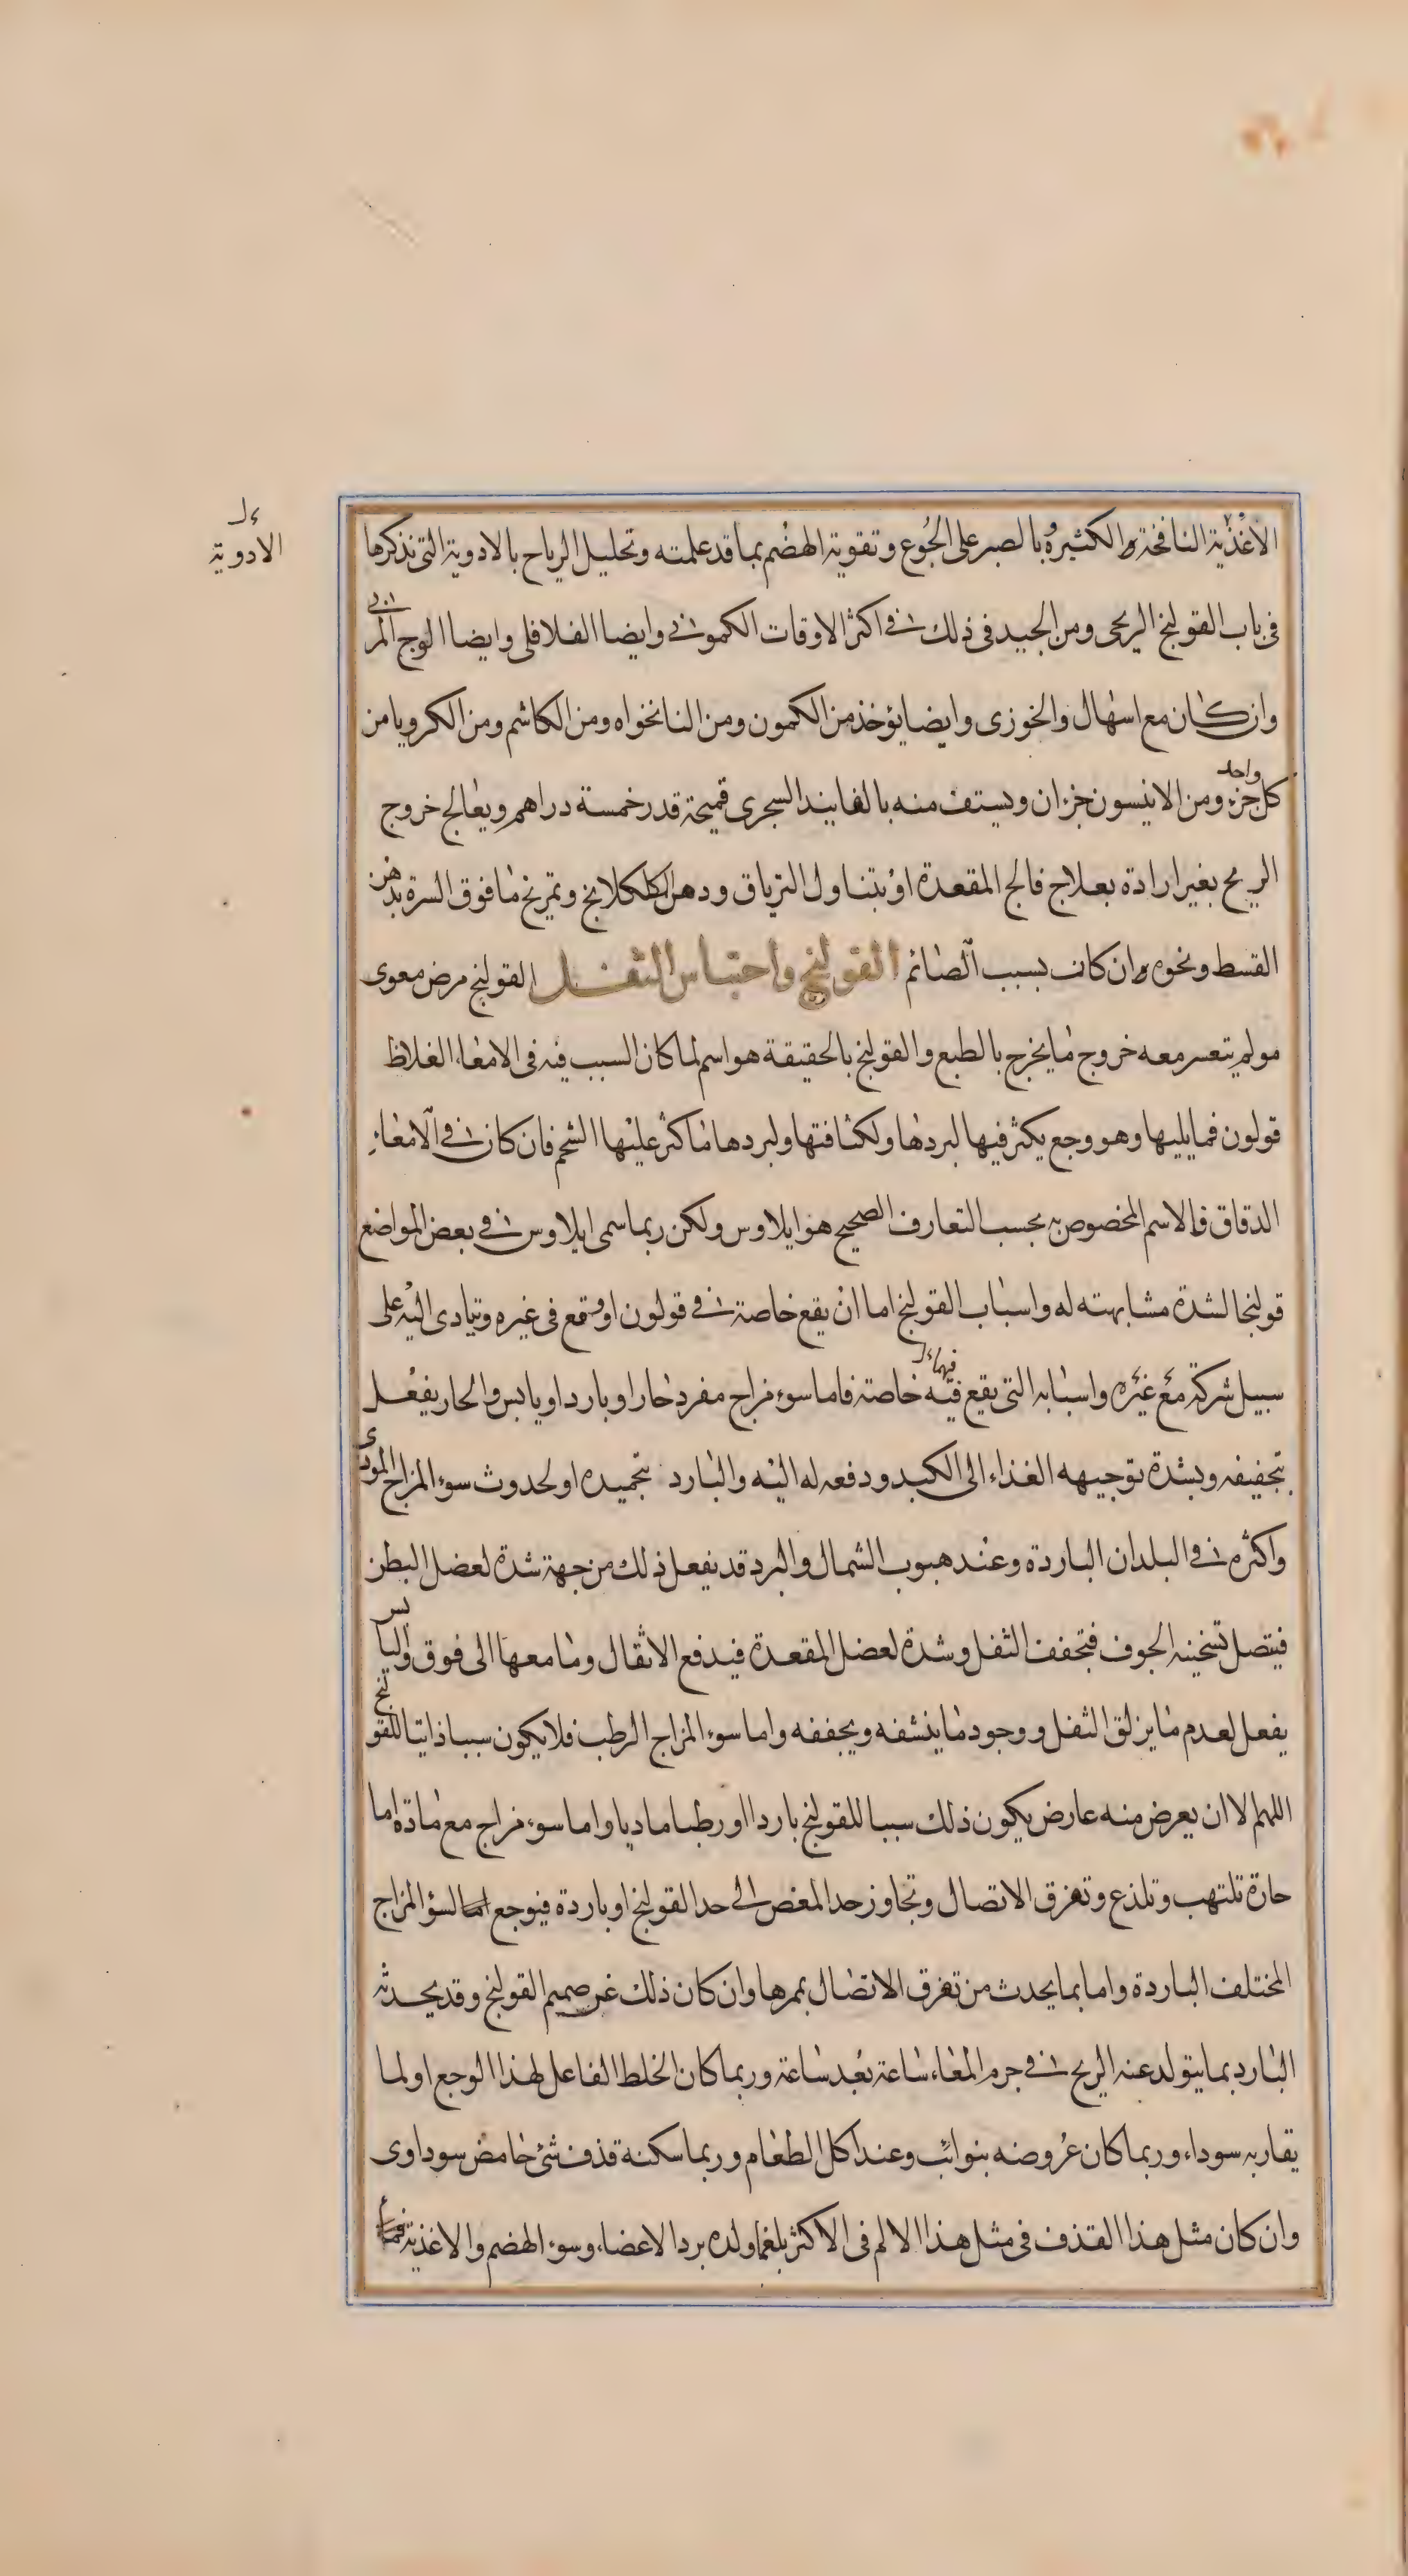 الاغذية النافخة والكثيرة بالصبر على الجوع وتقوية الهضم بما قد علمته وتحليل الرياح بالادوية التى نذكرها
الادوية
فى باب القولنج الريحى ومن الجيد فى ذلك فى اكثر الاوقات الكمونى وايضا الفلافلى وايضا الوج المربى
وان كان مع اسهال والخوزى وايضا يؤخذ من الكمون ومن النانخواه ومن الكاشم ومن الكرويا من
كل واحد جزء ومن الانيسون جزان ويستف منه بالفانيذ السجزى قميحة قدر خمسة دراهم ويعالج خروج
الريح بغير ارادة بعلاج فالج المقعدة او بتناول الترياق ودهن الكلكلانج وتمريخ ما فوق السرة بدهن
القسط ونحوه وان كانت بسبب الصائم القولنج واحتباس الثفل القولنج مرض معوى
مولم يتعسر معه خروج ما يخرج بالطبع والقولنج بالحقيقة هو اسم لما كان السبب فيه فى الامعاء الغلاظ
قولون فما يليها وهو وجع يكثر فيها لبردها ولكثافتها ولبردها ما كثر عليها الشحم فان كان فى الامعاء
الدقاق فالاسم المخصوص به بحسب التعارف الصحيح هو ايلاوس ولكن ربما سمى ايلاوس فى بعض المواضع
قولنجا لشدة مشابهته له واسباب القولنج اما ان يقع خاصة فى قولون او وقع فى غيره ويتادى اليه على
سبيل شركة مع غيره واسبابه التى يقع فيه فيهما خاصة فاما سوء مزاج مفرد حار او بارد او يابس والحار يفعل
بتجفيفه وبشدة توجيهه الغذاء الى الكبد ودفعه له اليه والبارد بتجميده او لحدوث سوء المزاج المودى
واكثره فى البلدان الباردة وعند هبوب الشمال والبرد قد يفعل ذلك من جهة شدة لعضل البطن
فيتصل تسخينه الجوف فتجفف الثفل وشدة لعضل المقعدة فيدفع الاثقال وما معها الى فوق واليابس
يفعل لعدم ما يزلق الثفل ووجود ما ينشفه ويجففه واما سوء المزاج الرطب فلا يكون سببا ذاتيا للقولنج
اللهم لا ان يعرض منه عارض يكون ذلك سببا للقولنج باردا او رطبا ماديا واما سوء مزاج مع مادة اما
حارة تلتهب وتلذع وتفرق الاتصال وتجاوز حد المغص الى حد القولنج او باردة فيوجع اما لسؤ المزاج
المختلف الباردة واما بما يحدث من تفرق الاتصال بمرها وان كان ذلك غير صميم القولنج وقد يحدثه
البارد بما يتولد عنه الريح فى جرم المعاء ساعة بعد ساعة وربما كان الخلط الفاعل لهذا الوجع او لما
يقاربه سوداء وربما كان عروضه بنوائب وعند اكل الطعام وربما سكنة قذف شئ حامض سوداوى
وان كان مثل هذا القذف فى مثل هذا الالم فى الاكثر بلغما ولده برد الاعضاء وسوء الهضم والاغذية